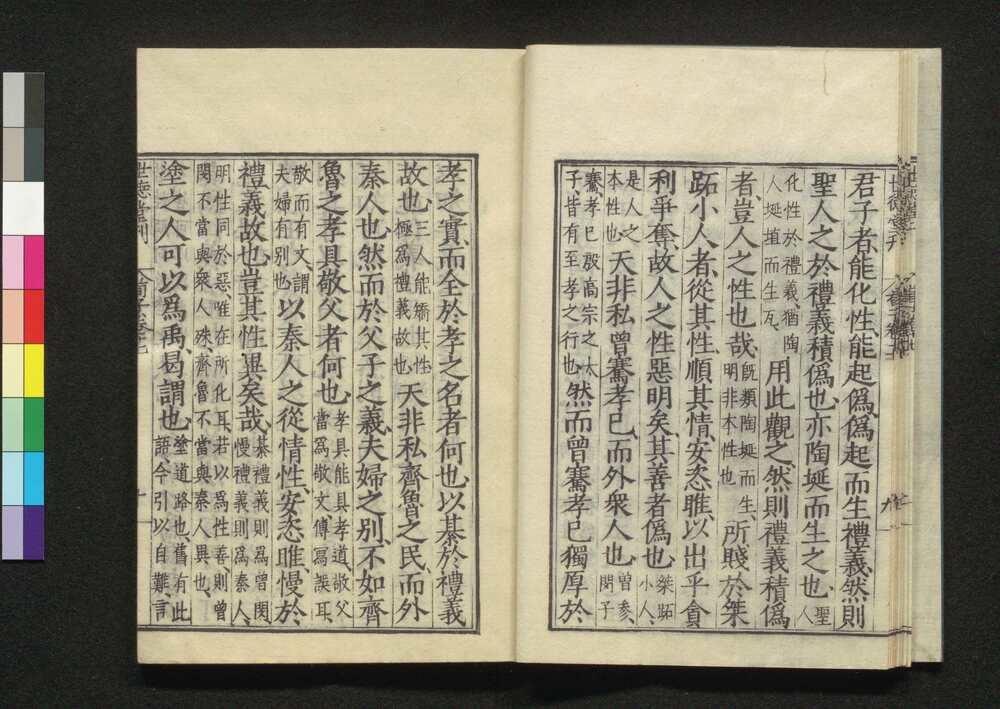 君子者能化性能起僞僞起而生禮義然則
聖人之於禮義積僞也亦陶埏而生之也聖人
化性於禮義猶陶人埏埴而生瓦用此觀之然則禮義積僞
者豈人之性也哉旣類陶埏而生明非本性也所賤於桀
跖小人者從其性順其情安恣睢以出乎貪
利爭奪故人之性惡明矣其善者僞也桀跖小人
是人之本性也天非私曾騫孝已而外衆人也曾參閔子
騫孝已殷高宗之太子皆有至孝之行也然而曾騫孝已獨厚於
孝之實而全於孝之名者何也以綦於禮義
故也三人能矯其性極爲禮義故也天非私齊魯之民而外
秦人也然而於父子之義夫婦之別不如齊
魯之孝具敬父者何也孝具能具孝道敬父當爲敬文傳寫誤耳
敬而有文謂夫婦有別也以秦人之從情性安恣睢慢於
禮義故也豈其性異矣哉綦禮義則爲曾閔慢禮義則爲秦人
明性同於惡唯在所化耳若以爲性善則曾閔不當與衆人殊齊魯不當與秦人異也
塗之人可以爲禹曷謂也塗道路也舊有此語今引以自難言
世德堂刊